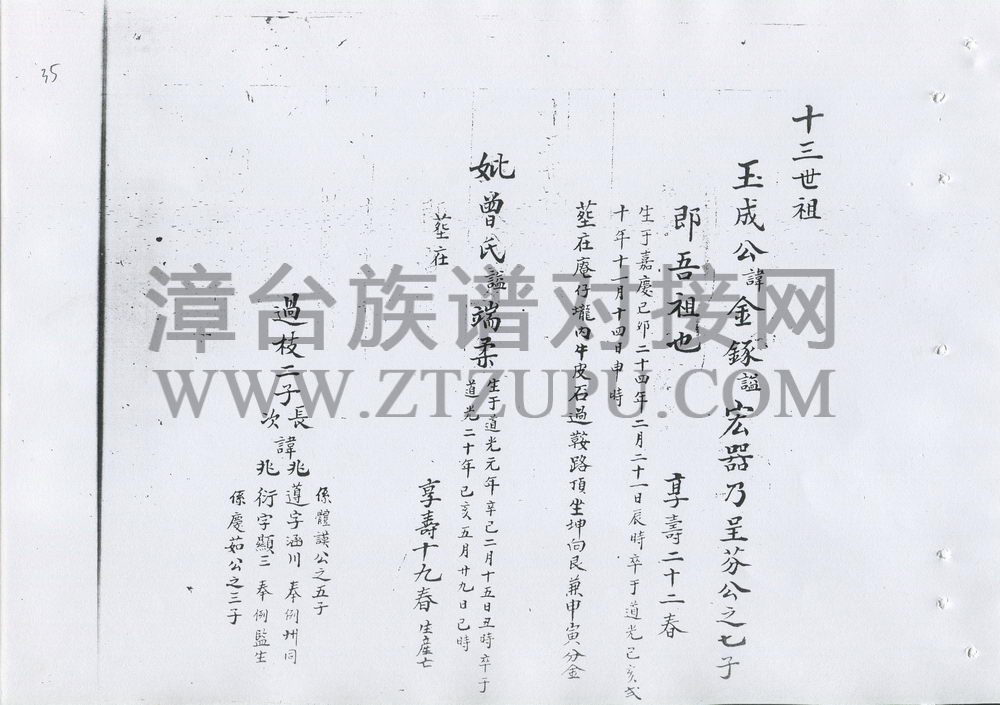 35
十三世祖
玉成公諱金鋉諡宏器乃呈芬公之七子
即吾祖也 享壽二十二春
生于嘉慶己卯二十四年二月二十一日辰時卒于道光己亥弍
十年十一月十四日申時
塟在菴仔壠内牛皮石過鞍路頂坐坤向艮兼申寅分金
妣曾氏諡端柔生于道光元年辛巳二月十五日丑時卒于
道光二十年己亥五月廿九日巳時
塟在 享壽十九春生産亡
過枝二子長諱兆遵字涵川奉例州同 係體謨公之五子
次兆衍字顯三奉例監生 係慶茹公之三子
漳台族谱对接网
WWW.ZTZUPU.COM